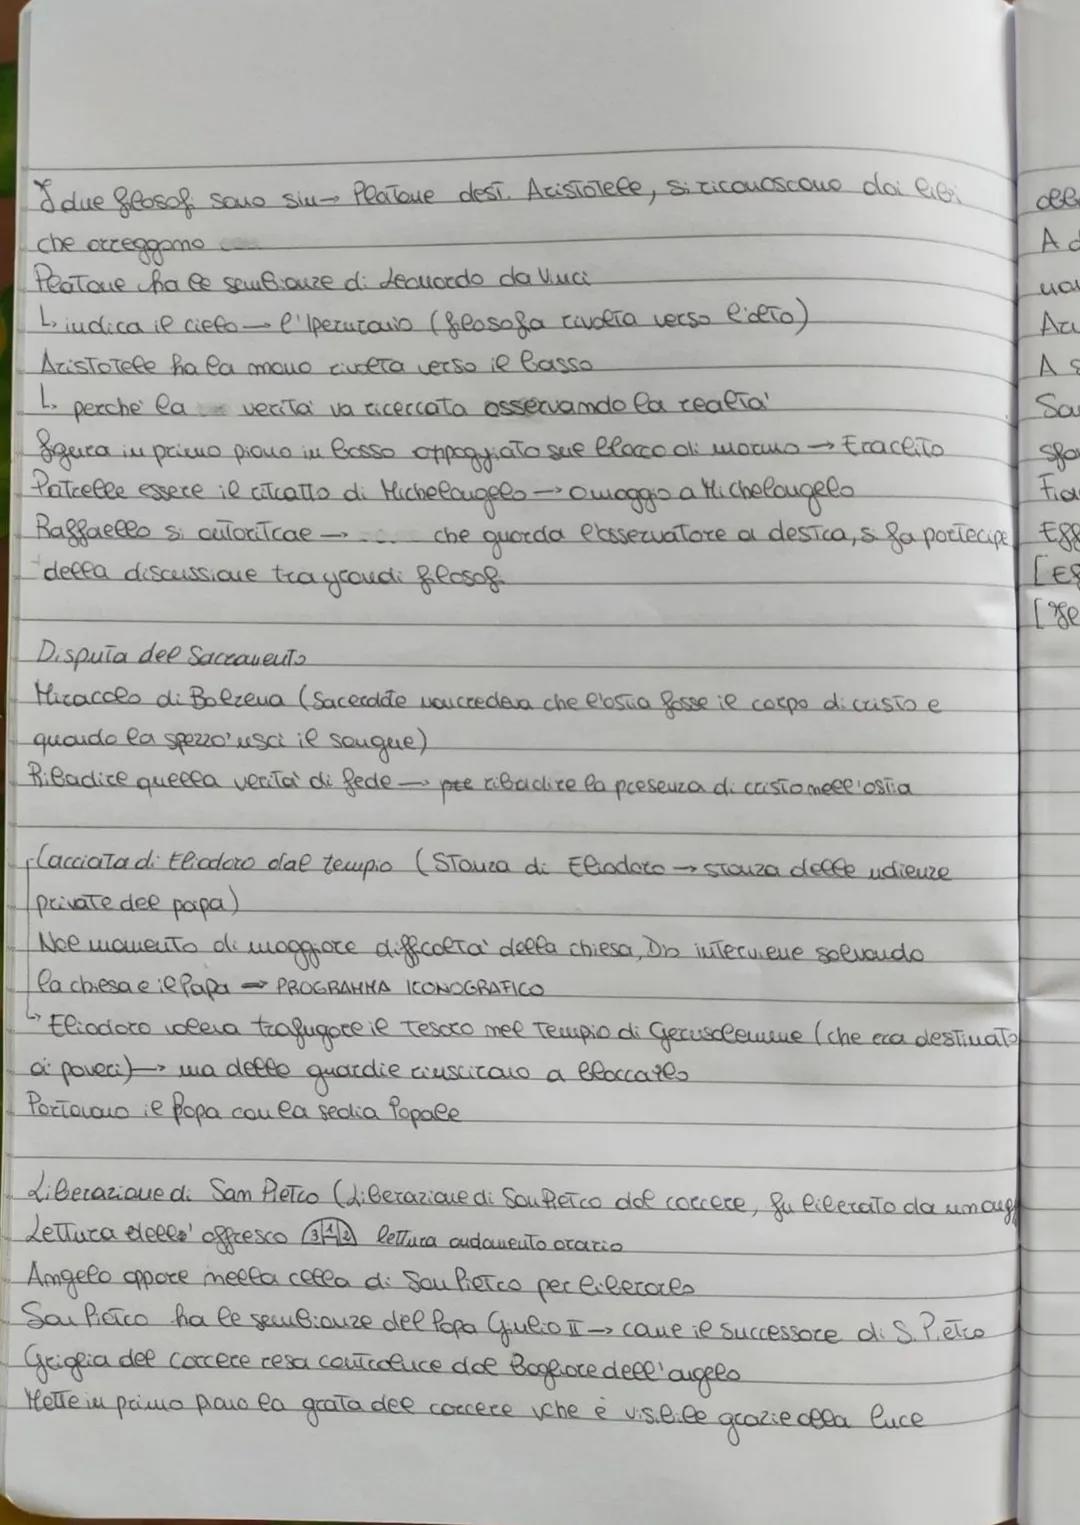 I due filosofi sono sin → Platone dest. Aristotele, si riconoscono dai libri
cheorreggono
Platone ha le sembianze di Leonardo da Vinci
↳ indica il cielo → l'Iperuranio (filosofia rivolta verso l'alto)
Aristotele ha la mano rivolta verso il basso
↳ perché la verità va ricercata osservando la realtà
figura in primo piano in basso appoggiato sul blocco di marmo → Eraclito
Potrebbe essere il ritratto di Michelangelo → omaggio a Michelangelo
Raffaello si autoritrae → ... che guarda l'osservatore a destra, si fa partecipe
della discussione tra grandi filosofi
Disputa del Sacramento
Miracolo di Bolzena (Sacerdote non credeva che l'ostia fosse il corpo di cristo e
quando la spezzò uscì il sangue)
Ribadire quella verità di fede → ribadire la presenza di cristo nell'ostia
Cacciata di Eliodoro dal tempio (Stanza di Eliodoro → stanza delle udienze
private del papa)
Nel momento di maggiore difficoltà della chiesa, Dio interviene salvando
la chiesa e il Papa → PROGRAMMA ICONOGRAFICO
↳ Eliodoro voleva trafugare il tesoro nel Tempio di Gerusalemme (che era destinato
ai poveri) → ma delle guardie riuscirono a bloccarlo
Portavano il Papa con la sedia Papale
Liberazione di San Pietro (Liberazione di San Pietro dal carcere, fu liberato da un ang
Lettura dell' affresco 3 1 2 lettura andamento orario
Angelo appare nella cella di San Pietro per liberarlo
San Pietro ha le sembianze del Papa Giulio II → come il successore di S. Pietro
Griglia del carcere resa controluce dal Bagliore dell'angelo
Mette in primo piano la grata del carcere che è visibile grazie alla luce
oll
A
Ar
A s
Sa
Fia
Eff